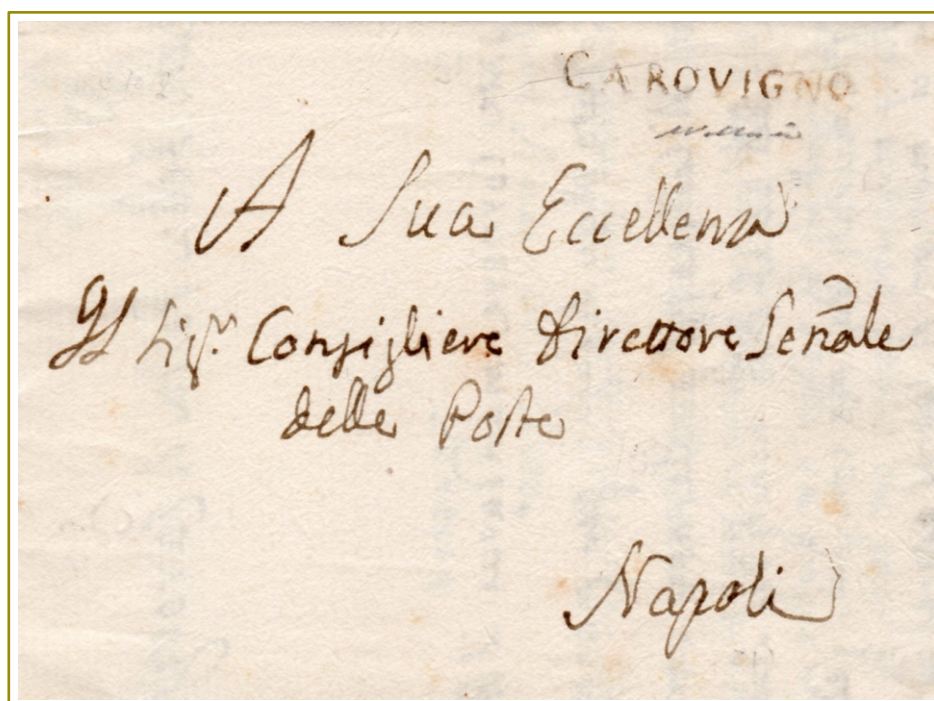 CAROVIGNO
A Sua Eccellenza
Il Sig.r Consigliere Direttore Genale
delle Poste
Napoli